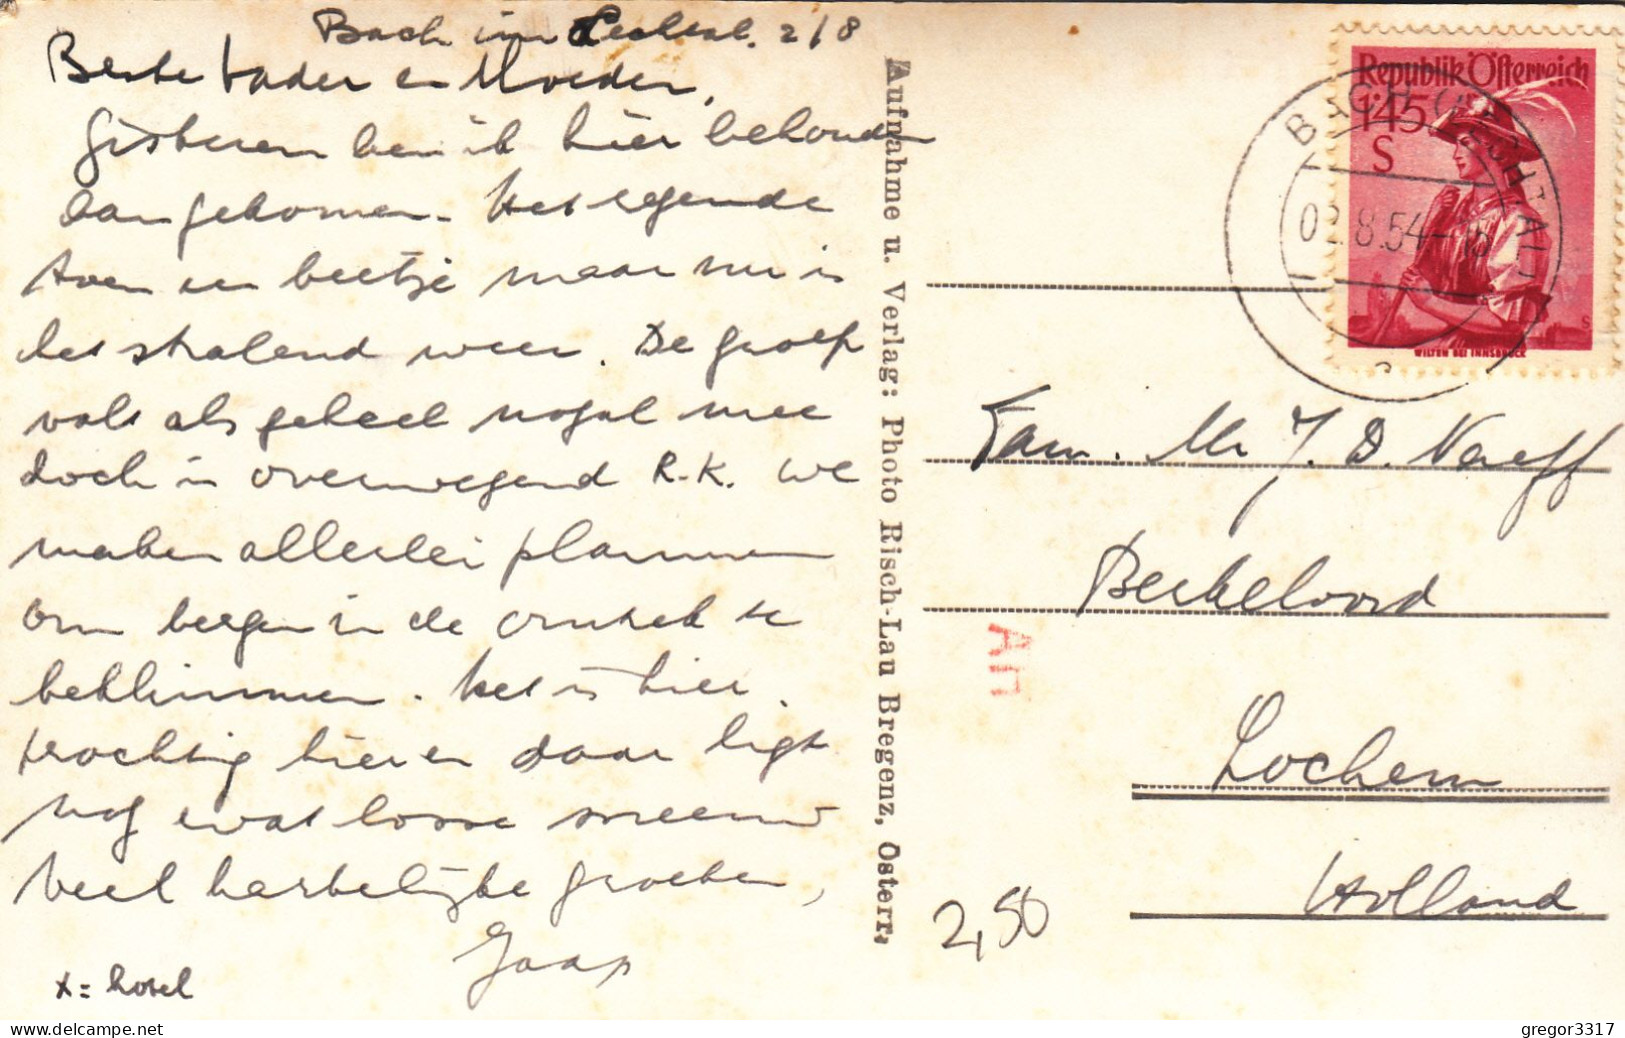 Bach im Lechtal. 2/8
Beste Vader en Moeder,
Gisteren ben ik hier behouden
aangekomen. Het regende
toen een beetje maar nu is
het stralend weer. De groep
valt als geheel nogal mee
doch is overwegend R.K. We
maken allerlei plannen
om bergen in de omtrek te
beklimmen. Het is hier
prachtig hier en daar ligt
nog wat losse sneeuw
Veel hartelijke groeten,
Jaap
x = hotel
Aufnahme u. Verlag: Photo Risch-Lau Bregenz, Österr.
Republik Österreich
1'45
S
WILTEN BEI INNSBRUCK
BACH (LECHTAL)
02.8.54
Fam. Mr J. D. Naeff
Berkeloord
Lochem
Holland
An
2,50
delcampe.net
gregor3317